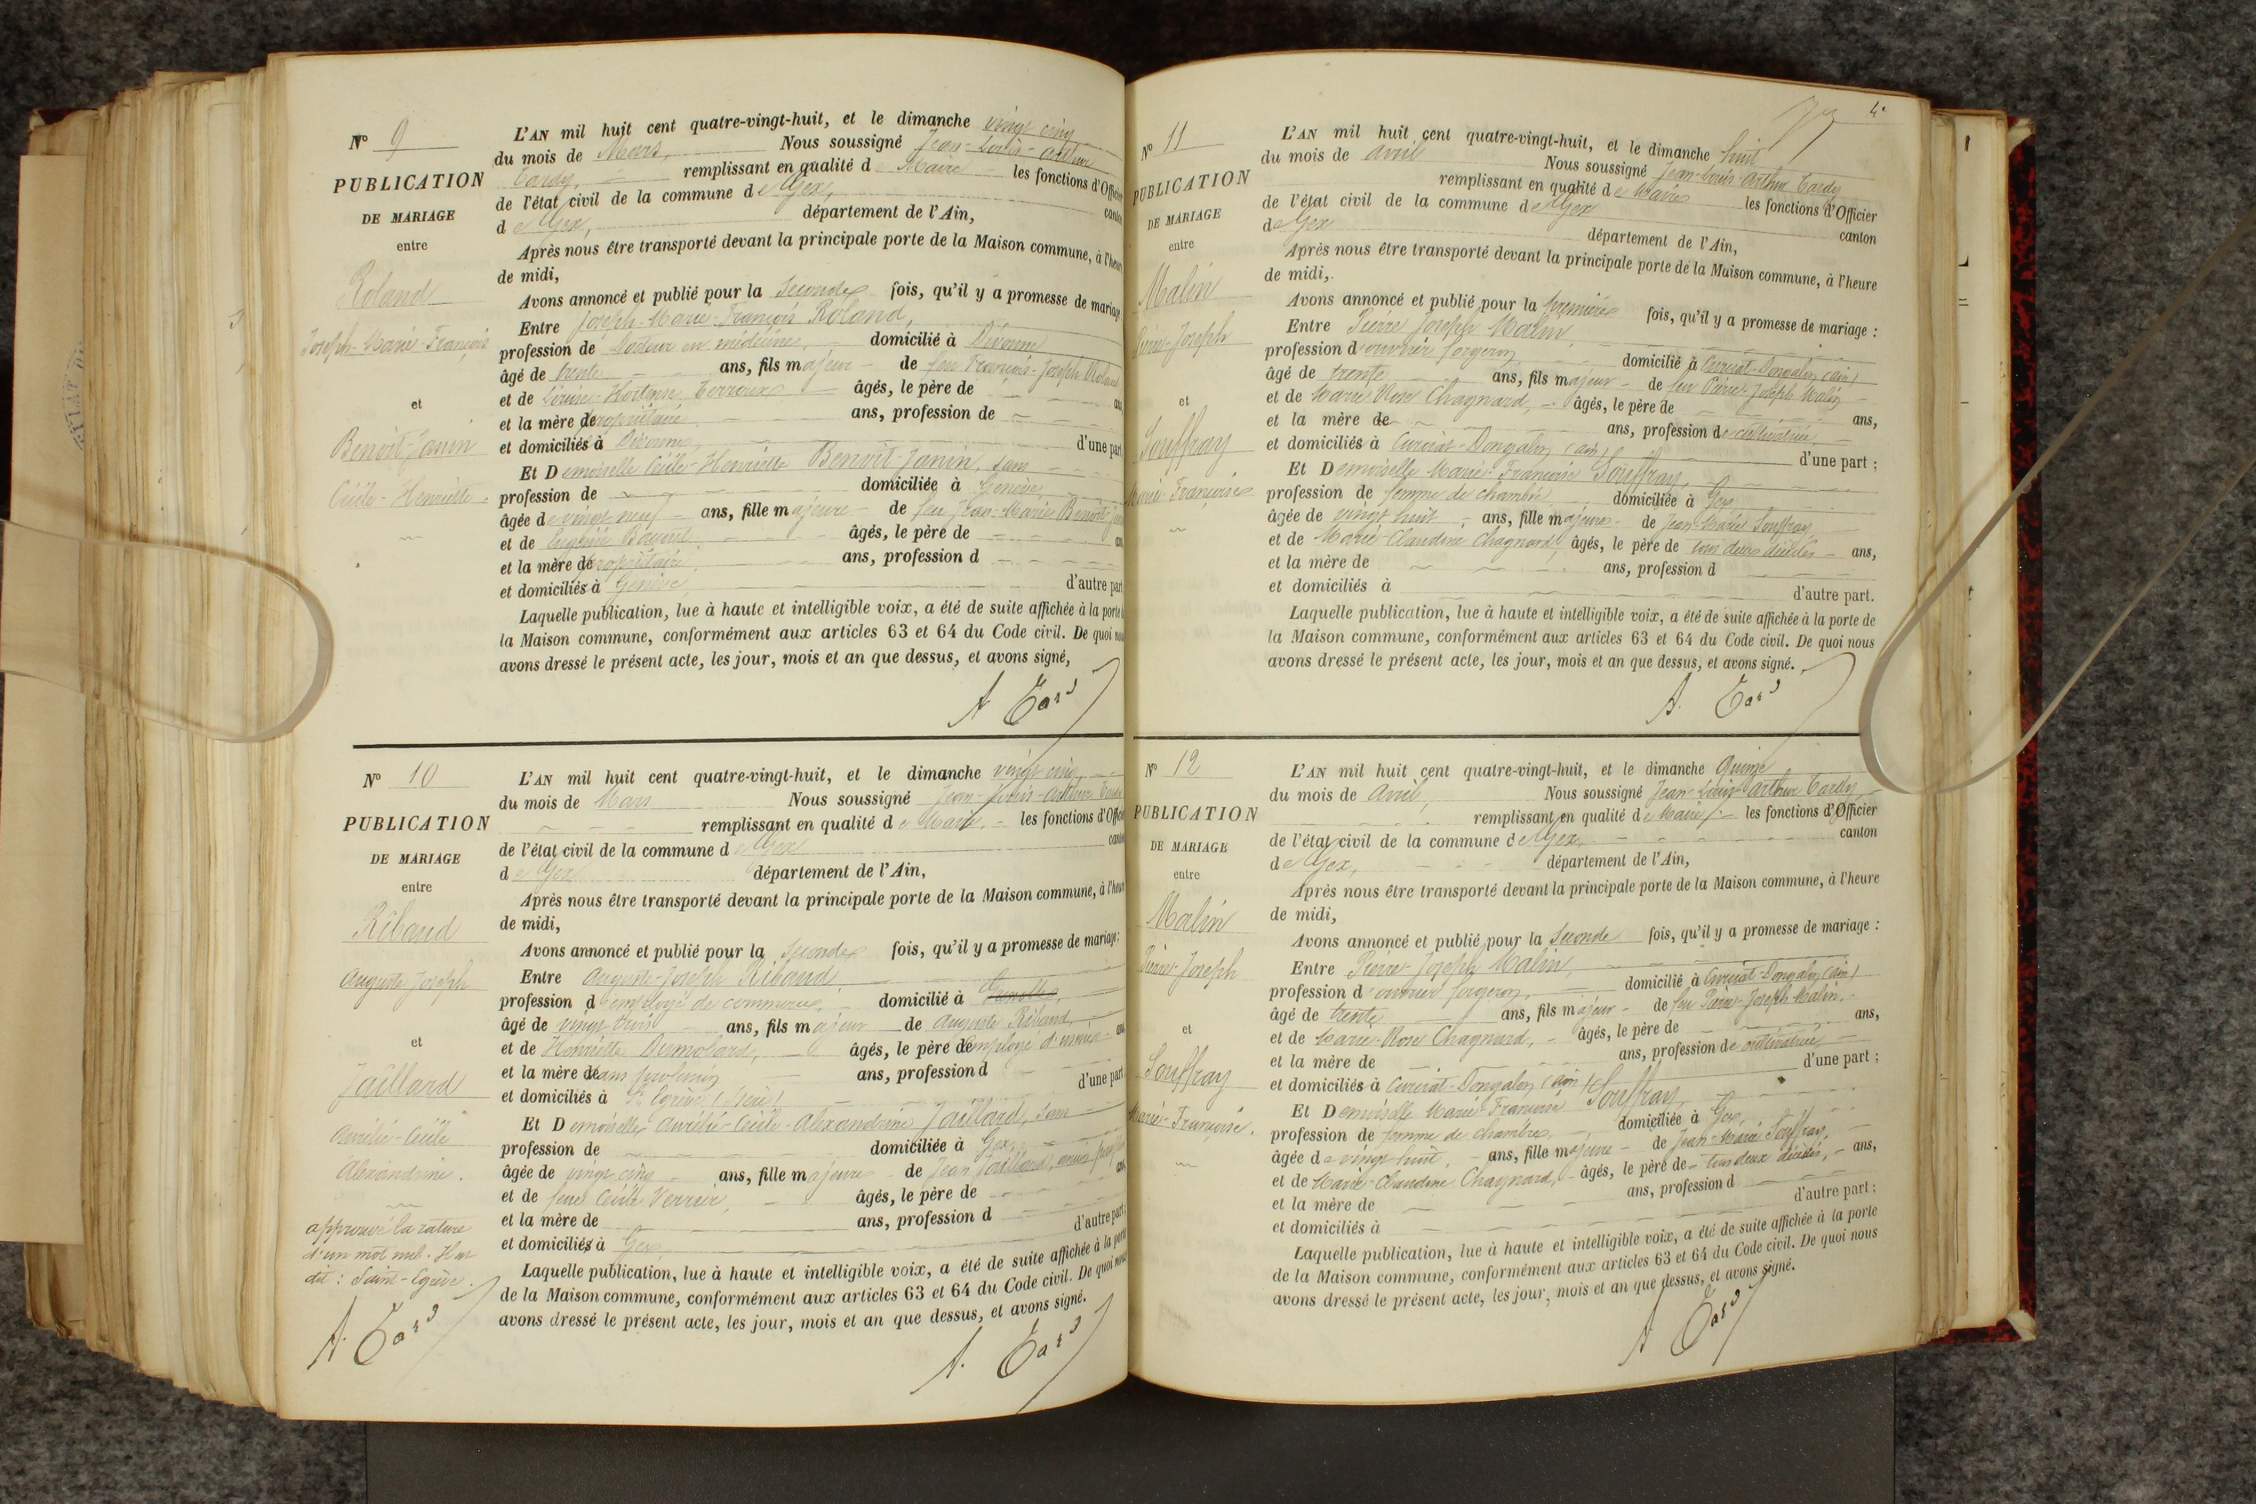 Nº 9
PUBLICATION
DE MARIAGE
entre
Roland
Joseph-Marie-François
et
Benoit-Janin
Cécile-Henriette.
L'AN mil huit cent quatre-vingt-huit, et le dimanche vingt cinq
du mois de Mars, Nous soussigné Jean-Louis-Arthur
Tardy, remplissant en qualité de Maire les fonctions d'Officier
de l'état civil de la commune de Gex, canton
de Gex, département de l'Ain,
Après nous être transporté devant la principale porte de la Maison commune, à l'heure
de midi,
Avons annoncé et publié pour la seconde fois, qu'il y a promesse de mariage
Entre Joseph-Marie-François Roland,
profession de Docteur en médecine, domicilié à Divonne
âgé de trente ans, fils majeur de feu François-Joseph Roland
et de Louise-Hortense âgés, le père de ans,
et la mère de propriétaire ans, profession de
et domiciliés à Divonne d'une part
Et Demoiselle Cécile-Henriette Benoit-Janin, sans
profession de domiciliée à Genève
âgée de vingt neuf ans, fille majeure de feu Jean-Marie Benoit-Janin
et de Eugénie âgés, le père de ans
et la mère de propriétaire ans, profession d
et domiciliés à Genève, d'autre part
Laquelle publication, lue à haute et intelligible voix, a été de suite affichée à la porte de
la Maison commune, conformément aux articles 63 et 64 du Code civil. De quoi nous
avons dressé le présent acte, les jour, mois et an que dessus, et avons signé,
A. Tardy
Nº 10
PUBLICATION
DE MARIAGE
entre
Ribaud
Auguste Joseph
et
Jaillard
Aurélie-Cécile
Alexandrine.
approuvé la rature
d'un mot nul.
dit: Saint-Egrève.
A. Tardy
L'AN mil huit cent quatre-vingt-huit, et le dimanche vingt cinq
du mois de Mars Nous soussigné Jean-Louis-Arthur Tardy
remplissant en qualité de Maire, les fonctions d'Officier
de l'état civil de la commune de Gex canton
de Gex département de l'Ain,
Après nous être transporté devant la principale porte de la Maison commune, à l'heure
de midi,
Avons annoncé et publié pour la seconde fois, qu'il y a promesse de mariage:
Entre Auguste-Joseph Ribaud,
profession d'employé de commerce, domicilié à
âgé de vingt trois ans, fils majeur de Auguste Ribaud, ans
et de Henriette Dumolard, âgés, le père de employé
et la mère de sans profession ans, profession d
et domiciliés à St Egrève (Isère) d'une part
Et Demoiselle Aurélie-Cécile-Alexandrine Jaillard, sans
profession de domiciliée à Gex,
âgée de vingt cinq ans, fille majeure de Jean Jaillard,
et de feue Cécile Verrier, âgés, le père de ans
et la mère de ans, profession d
et domiciliés à Gex d'autre part:
Laquelle publication, lue à haute et intelligible voix, a été de suite affichée à la porte
de la Maison commune, conformément aux articles 63 et 64 du Code civil. De quoi nous
avons dressé le présent acte, les jour, mois et an que dessus, et avons signé.
A. Tardy
4.
Nº 11
PUBLICATION
DE MARIAGE
entre
Malin
Pierre-Joseph
et
Souffray
Marie-Françoise
L'AN mil huit cent quatre-vingt-huit, et le dimanche huit
du mois de Avril Nous soussigné Jean-Louis-Arthur Tardy
remplissant en qualité de Maire les fonctions d'Officier
de l'état civil de la commune de Gex canton
de Gex département de l'Ain,
Après nous être transporté devant la principale porte de la Maison commune, à l'heure
de midi,.
Avons annoncé et publié pour la première fois, qu'il y a promesse de mariage :
Entre Pierre Joseph Malin,
profession d'ouvrier forgeron domicilié à Curciat-Dongalon (Ain)
âgé de trente ans, fils majeur de feu Pierre-Joseph Malin
et de Marie-Rose Chagnard, âgés, le père de ans,
et la mère de ans, profession de cultivatrice
et domiciliés à Curciat-Dongalon (Ain) d'une part ;
Et Demoiselle Marie-Françoise Souffray,
profession de femme de chambre domiciliée à Gex
âgée de vingt huit ans, fille majeure de Jean-Marie Souffray
et de Marie-Claudine Chagnard, âgés, le père de tous deux décédés ans,
et la mère de ans, profession d
et domiciliés à d'autre part.
Laquelle publication, lue à haute et intelligible voix, a été de suite affichée à la porte de
la Maison commune, conformément aux articles 63 et 64 du Code civil. De quoi nous
avons dressé le présent acte, les jour, mois et an que dessus, et avons signé.
A. Tardy
Nº 12
PUBLICATION
DE MARIAGE
entre
Malin
Pierre-Joseph
et
Souffray
Marie-Françoise.
L'AN mil huit cent quatre-vingt-huit, et le dimanche Quinze
du mois de Avril, Nous soussigné Jean-Louis Arthur Tardy,
remplissant en qualité de Maire, les fonctions d'Officier
de l'état civil de la commune de Gex, canton
de Gex, département de l'Ain,
Après nous être transporté devant la principale porte de la Maison commune, à l'heure
de midi,
Avons annoncé et publié pour la seconde fois, qu'il y a promesse de mariage :
Entre Pierre-Joseph Malin,
profession d'ouvrier forgeron, domicilié à Curciat-Dongalon (Ain)
âgé de trente ans, fils majeur de feu Pierre-Joseph Malin.
et de Marie-Rose Chagnard, âgés, le père de ans,
et la mère de ans, profession de cultivatrice
et domiciliés à Curciat-Dongalon (Ain) d'une part ;
Et Demoiselle Marie-Françoise Souffray,
profession de femme de chambre, domiciliée à Gex,
âgée de vingt huit, ans, fille majeure de Jean-Marie Souffray,
et de Marie-Claudine Chagnard, âgés, le père de tous deux décédés, ans,
et la mère de ans, profession d
et domiciliés à d'autre part ;
Laquelle publication, lue à haute et intelligible voix, a été de suite affichée à la porte
de la Maison commune, conformément aux articles 63 et 64 du Code civil. De quoi nous
avons dressé le présent acte, les jour, mois et an que dessus, et avons signé.
A. Tardy